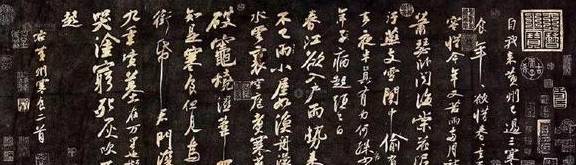 自我來黃州已過三寒
食年年欲惜春
容惜今年又苦雨兩月
蕭瑟臥聞海棠花
汙燕支雪闇中偷
夜半真有力何殊
年子病起頭已白
春江欲入戶雨勢
不已雨小屋如漁舟濛
水雲裏空庖煮寒菜
破竈燒濕葦
知是寒食但見烏
銜帋君門深
九重墳墓在万里
哭塗窮死灰吹不
起
右黃州寒食二首